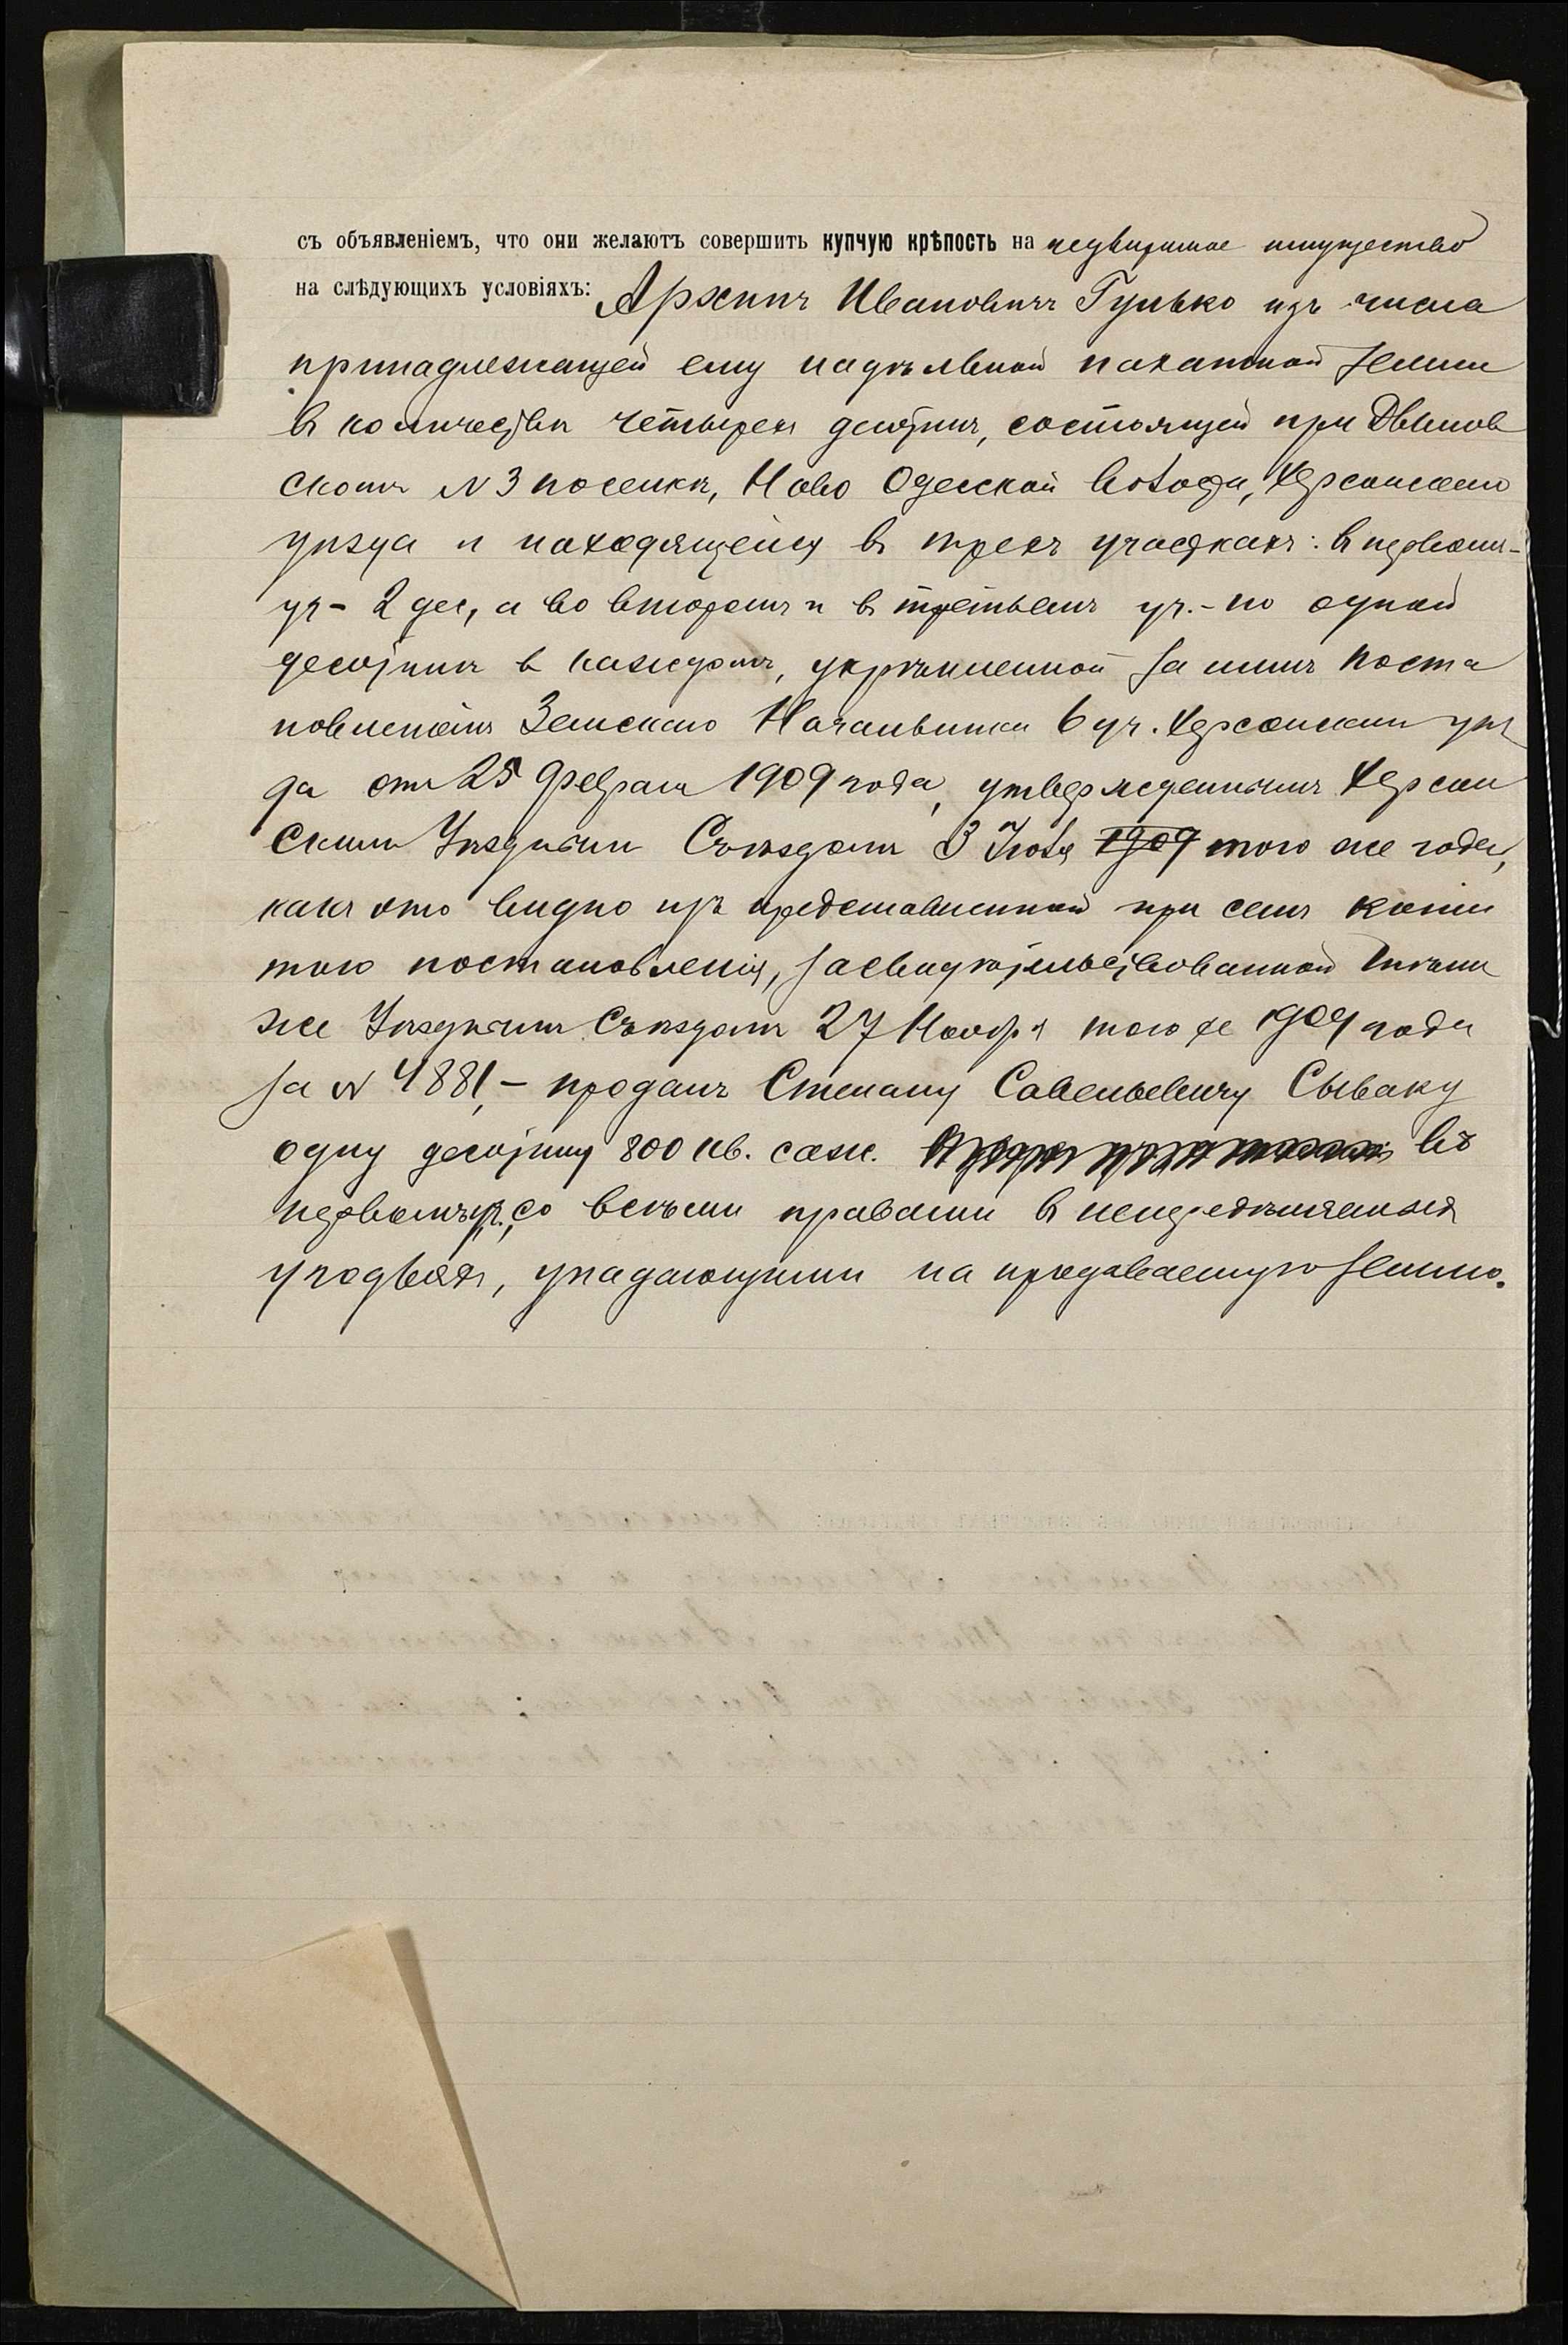 съ объявленіемъ, что они желаютъ совершить купчую крѣпость на недвижимое имущество
на слѣдующихъ условіяхъ: Архипъ Ивановичъ Гулько изъ числа
принадлежащей ему надѣльной пахатной земли
въ количествѣ четырехъ десятинъ, состоящей при
скомъ № 3 поселкѣ, Ново Одесской волости, Херсонскаго
уѣзда и находящейся въ трехъ участкахъ: въ первомъ
уч- 2 дес, а во второмъ и въ третьемъ уч.- по одной
десятинѣ въ каждомъ, укрѣпленной за нимъ поста
новленіемъ Земскаго Начальника 6 уч. Херсонскаго уѣз
да отъ 25 Февраля 1909 года, утвержденнымъ Херсон
скимъ Уѣзднымъ Съѣздомъ 3 Іюля 1909 того же года,
какъ это видно изъ представленной при семъ копіи
того постановленія, засвидѣтельствованной тѣмъ
же Уѣзднымъ Съѣздомъ 27 Ноября того же 1909 года
за № 4881,- продалъ Степану Савельевичу Сываку
одну десятину 800 кв. саж. въ
первомъ уч., со всѣми правами въ нераздѣляемыхъ
угодьяхъ, упадающими на продаваемую землю.